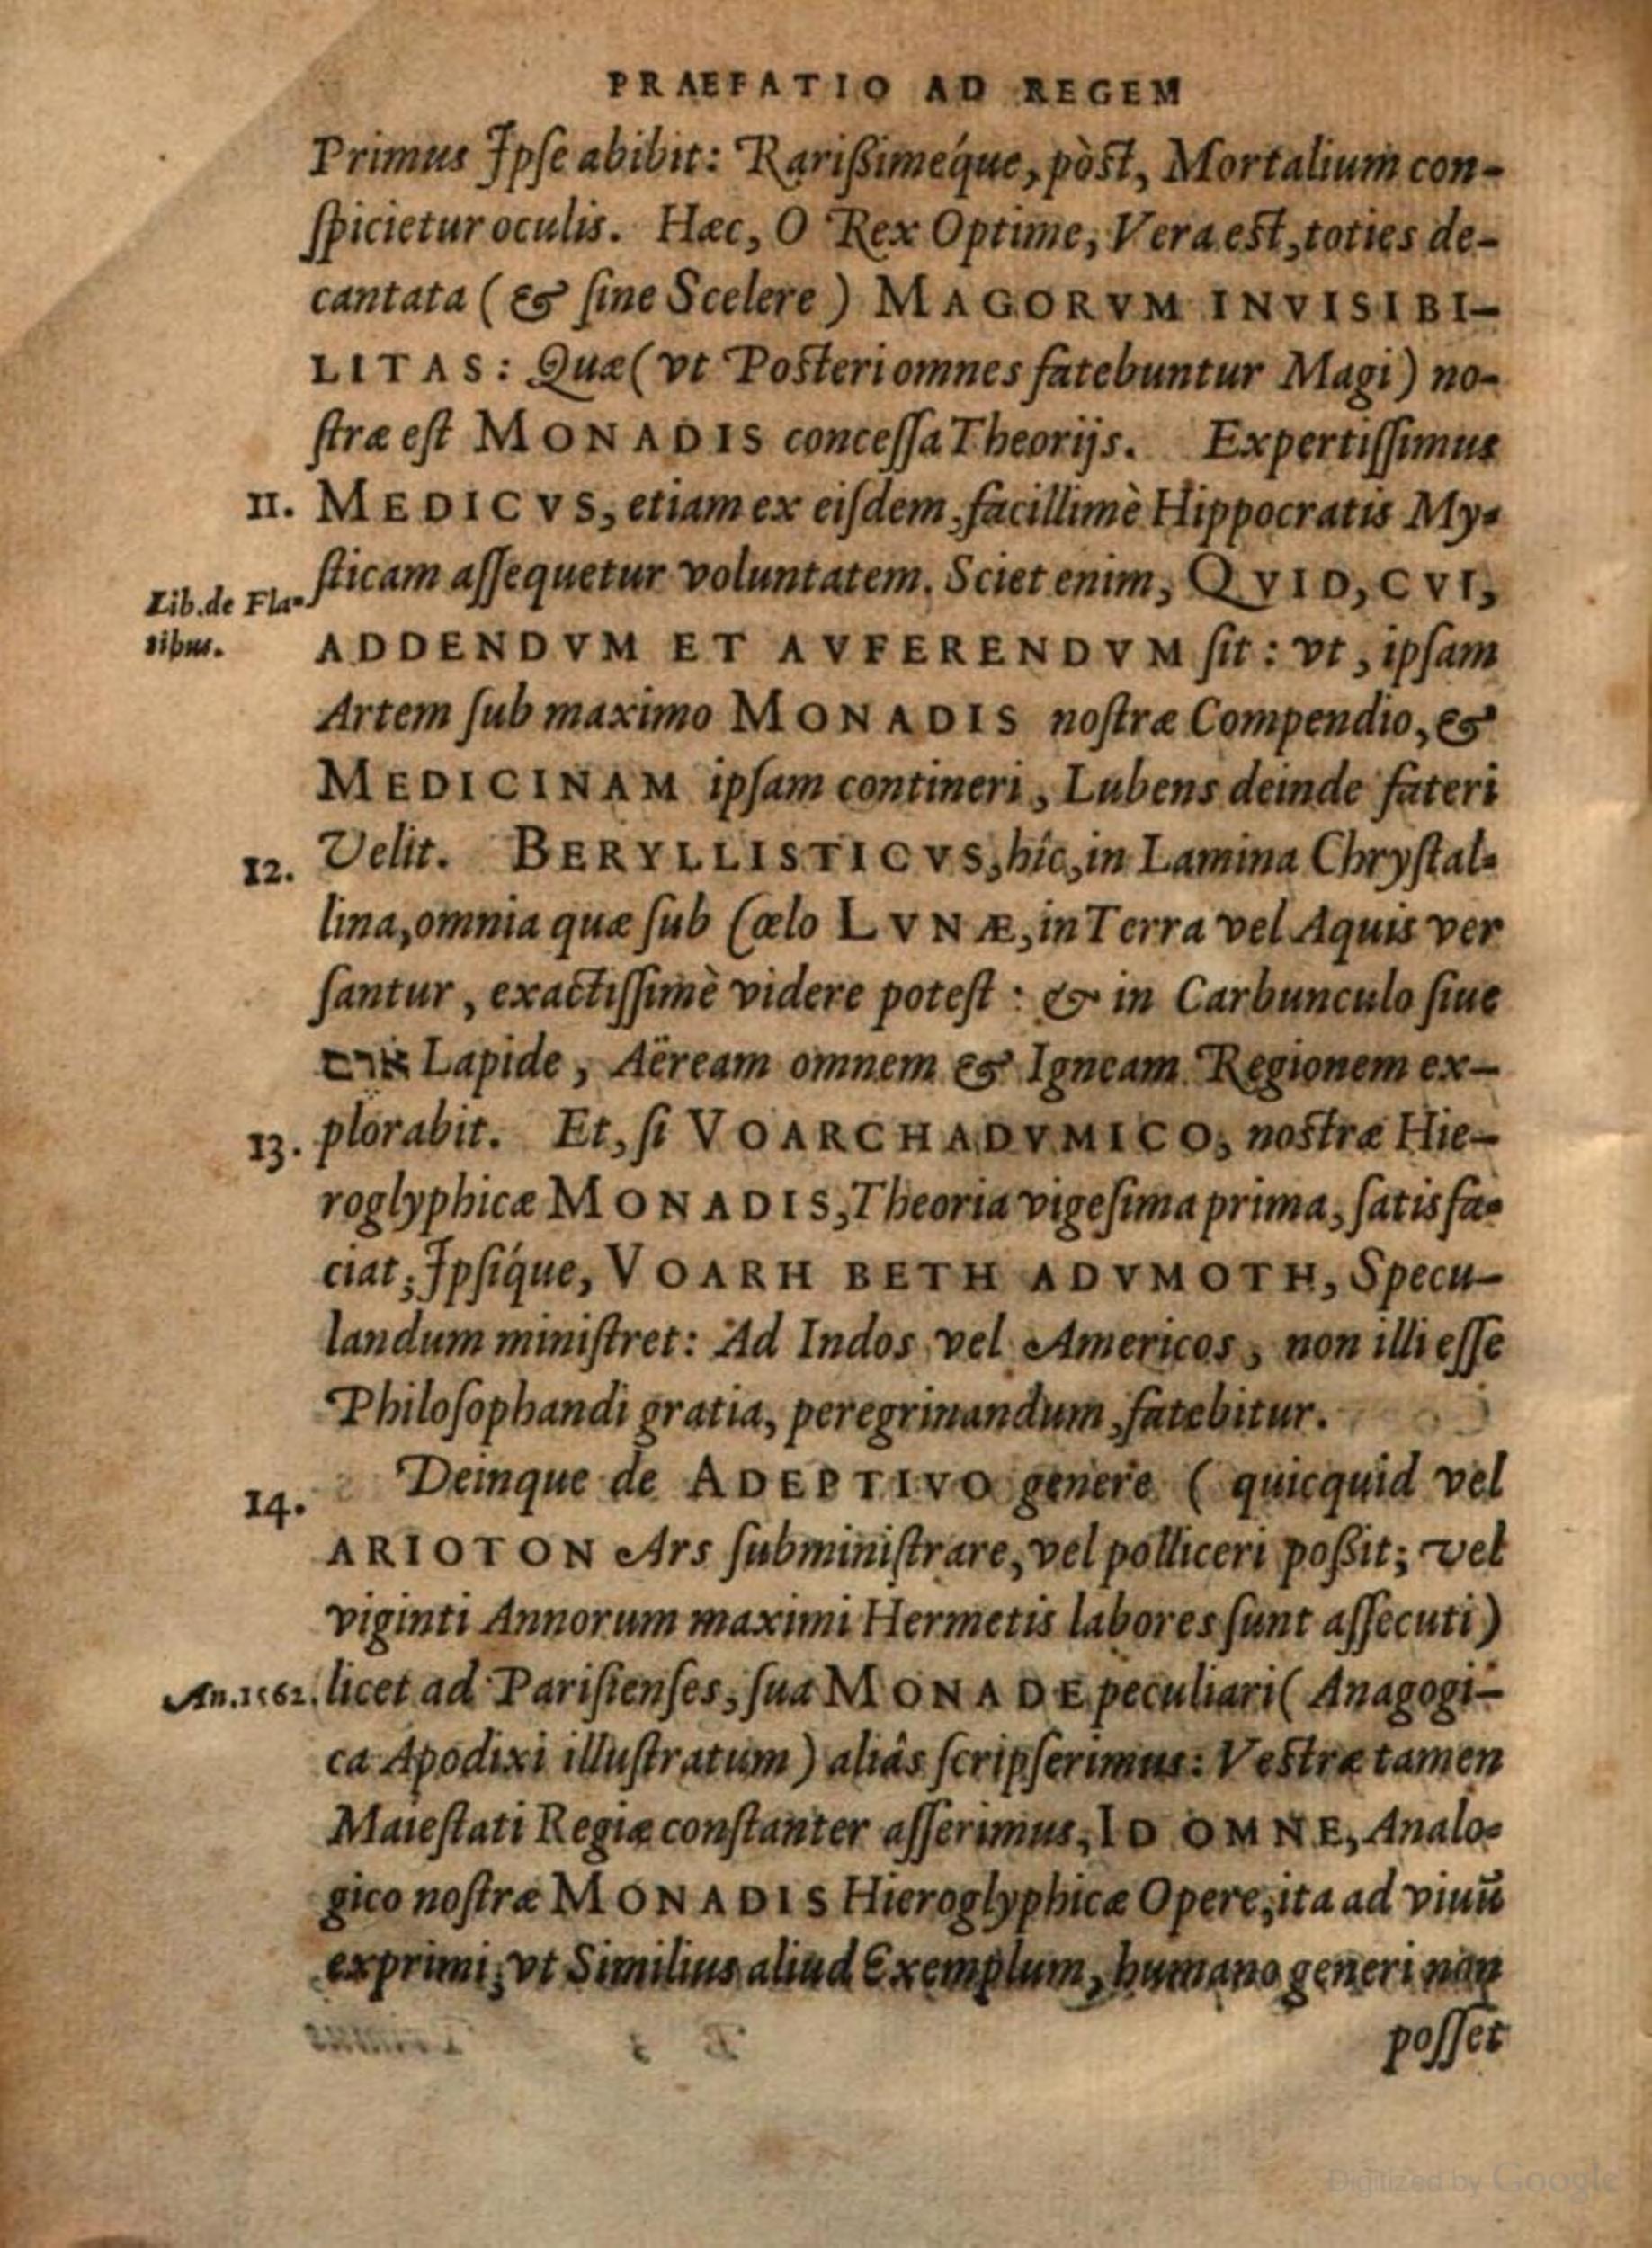 PRAEFATIO AD REGEM
Primus Ipſe abibit: Rarißiméque, pòst, Mortalium con-
ſpicietur oculis. Hæc, O Rex Optime, Vera est, toties de-
cantata (& ſine Scelere) MAGORVM INVISIBI-
LITAS: Quæ (vt Posteri omnes fatebuntur Magi) no-
ſtræ eſt MONADIS conceſſa Theorijs. Expertiſſimus
11. MEDICVS, etiam ex eiſdem, facillimè Hippocratis My-
ſticam aſſequetur voluntatem. Sciet enim, QVID, CVI,
Lib. de Fla-
tibus.
ADDENDVM ET AVFERENDVM ſit: vt, ipſam
Artem ſub maximo MONADIS noſtræ Compendio, &
MEDICINAM ipſam contineri, Lubens deinde fateri
12. Velit. BERYLLISTICVS, hîc, in Lamina Chryſtal-
lina, omnia quæ ſub Cœlo LVNÆ, in Terra vel Aquis ver
ſantur, exactiſſimè videre poteſt: & in Carbunculo ſiue
Lapide, Aëream omnem & Igneam Regionem ex-
13. plorabit. Et, ſi VOARCHADVMICO, nostræ Hie-
roglyphicæ MONADIS, Theoria vigeſima prima, ſatisfa-
ciat; Ipſíque, VOARH BETH ADVMOTH, Specu-
landum miniſtret: Ad Indos vel Americos, non illi eſſe
Philoſophandi gratia, peregrinandum, fatebitur.
14. Deinque de ADEPTIVO genere (quicquid vel
ARIOTON Ars ſubminiſtrare, vel polliceri poßit; vel
viginti Annorum maximi Hermetis labores ſunt aſſecuti)
An. 1562. licet ad Pariſienſes, ſua MONADE peculiari (Anagogi-
ca Apodixi illuſtratum) aliâs ſcripſerimus: Vestræ tamen
Maieſtati Regiæ conſtanter aſſerimus, ID OMNE, Analo-
gico noſtræ MONADIS Hieroglyphicæ Opere, ita ad viuũ
exprimi; vt Similius aliud Exemplum, humano generi non
poſſet
Digitized by Google